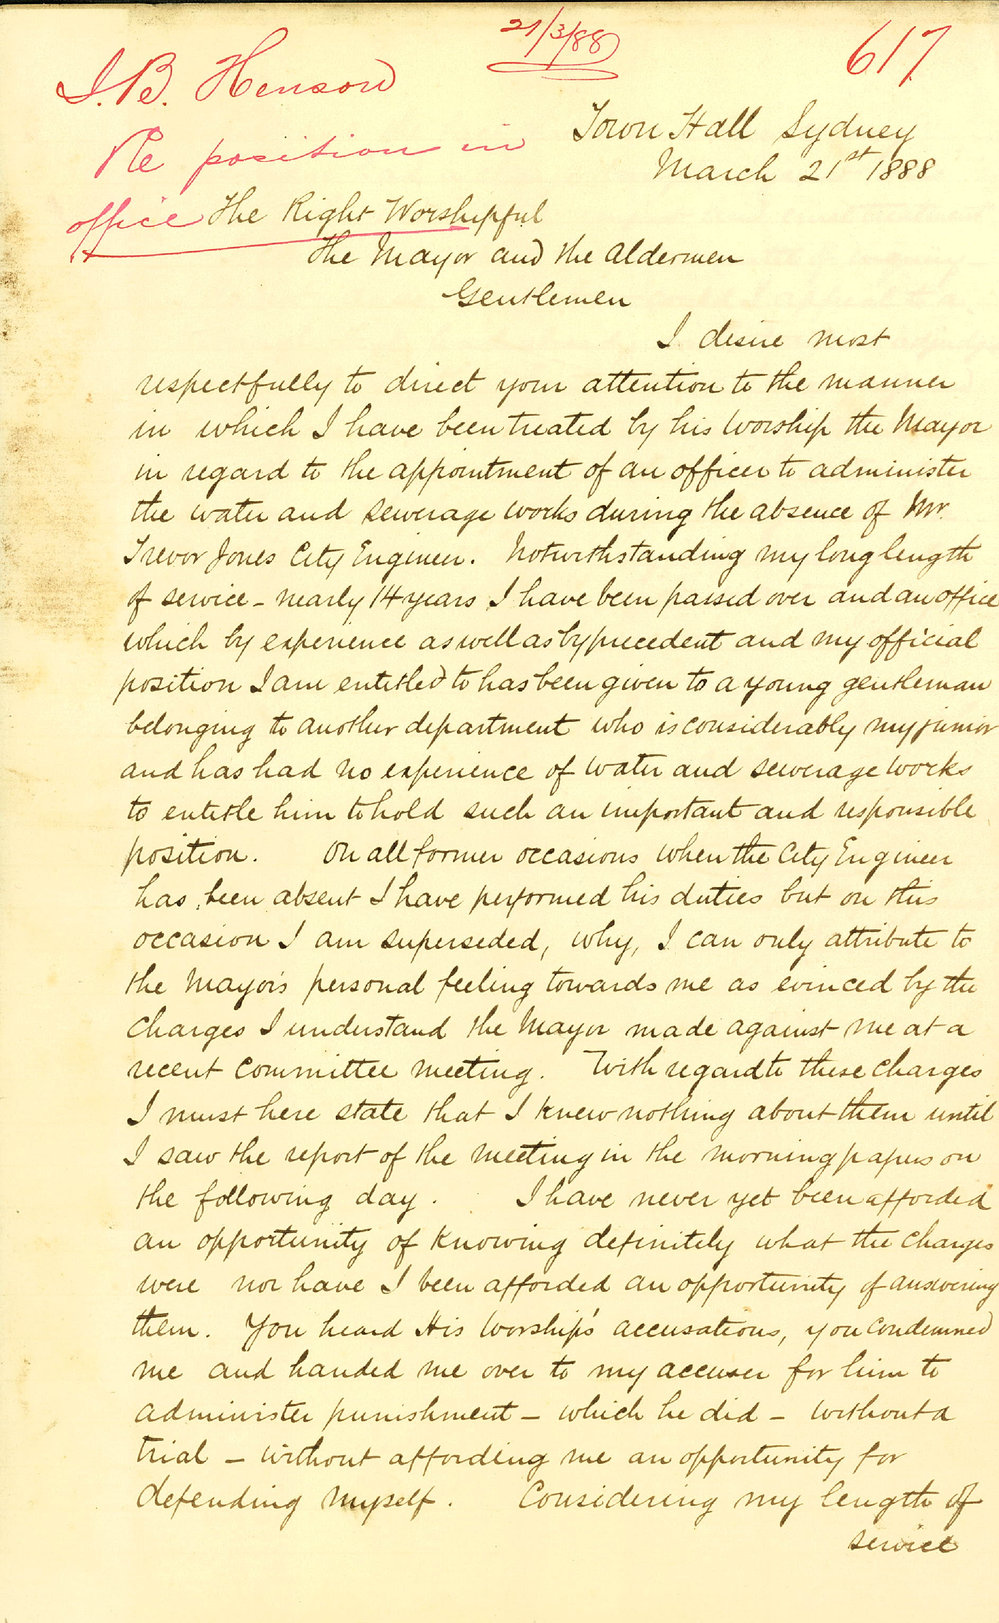 21/3/88
617
J. B. Henson
Re position in
office
Town Hall Sydney
March 21st 1888
The Right Worshipful
The Mayor and the Aldermen
Gentlemen
I desire most
respectfully to direct your attention to the manner
in which I have been treated by his Worship the Mayor
in regard to the appointment of an officer to administer
the water and sewerage works during the absence of Mr.
Trevor Jones City Engineer. Notwithstanding my long length
of service - nearly 14 years I have been passed over and an office
which by experience as well as by precedent and my official
position I am entitled to has been given to a young gentleman
belonging to another department who is considerably my junior
and has had no experience of water and sewerage works
to entitle him to hold such an important and responsible
position. On all former occasions when the City Engineer
has been absent I have performed his duties but on this
occasion I am superseded, why, I can only attribute to
the Mayor's personal feeling towards me as evinced by the
charges I understand the Mayor made against me at a
recent committee meeting. With regard to these charges
I must here state that I knew nothing about them until
I saw the report of the meeting in the morning papers on
the following day. I have never yet been afforded
an opportunity of knowing definitely what the charges
were nor have I been afforded an opportunity of answering
them. You heard His Worship's accusations, you condemned
me and handed me over to my accuser for him to
administer punishment - which he did - without a
trial - without affording me an opportunity for
defending myself. Considering my length of
service